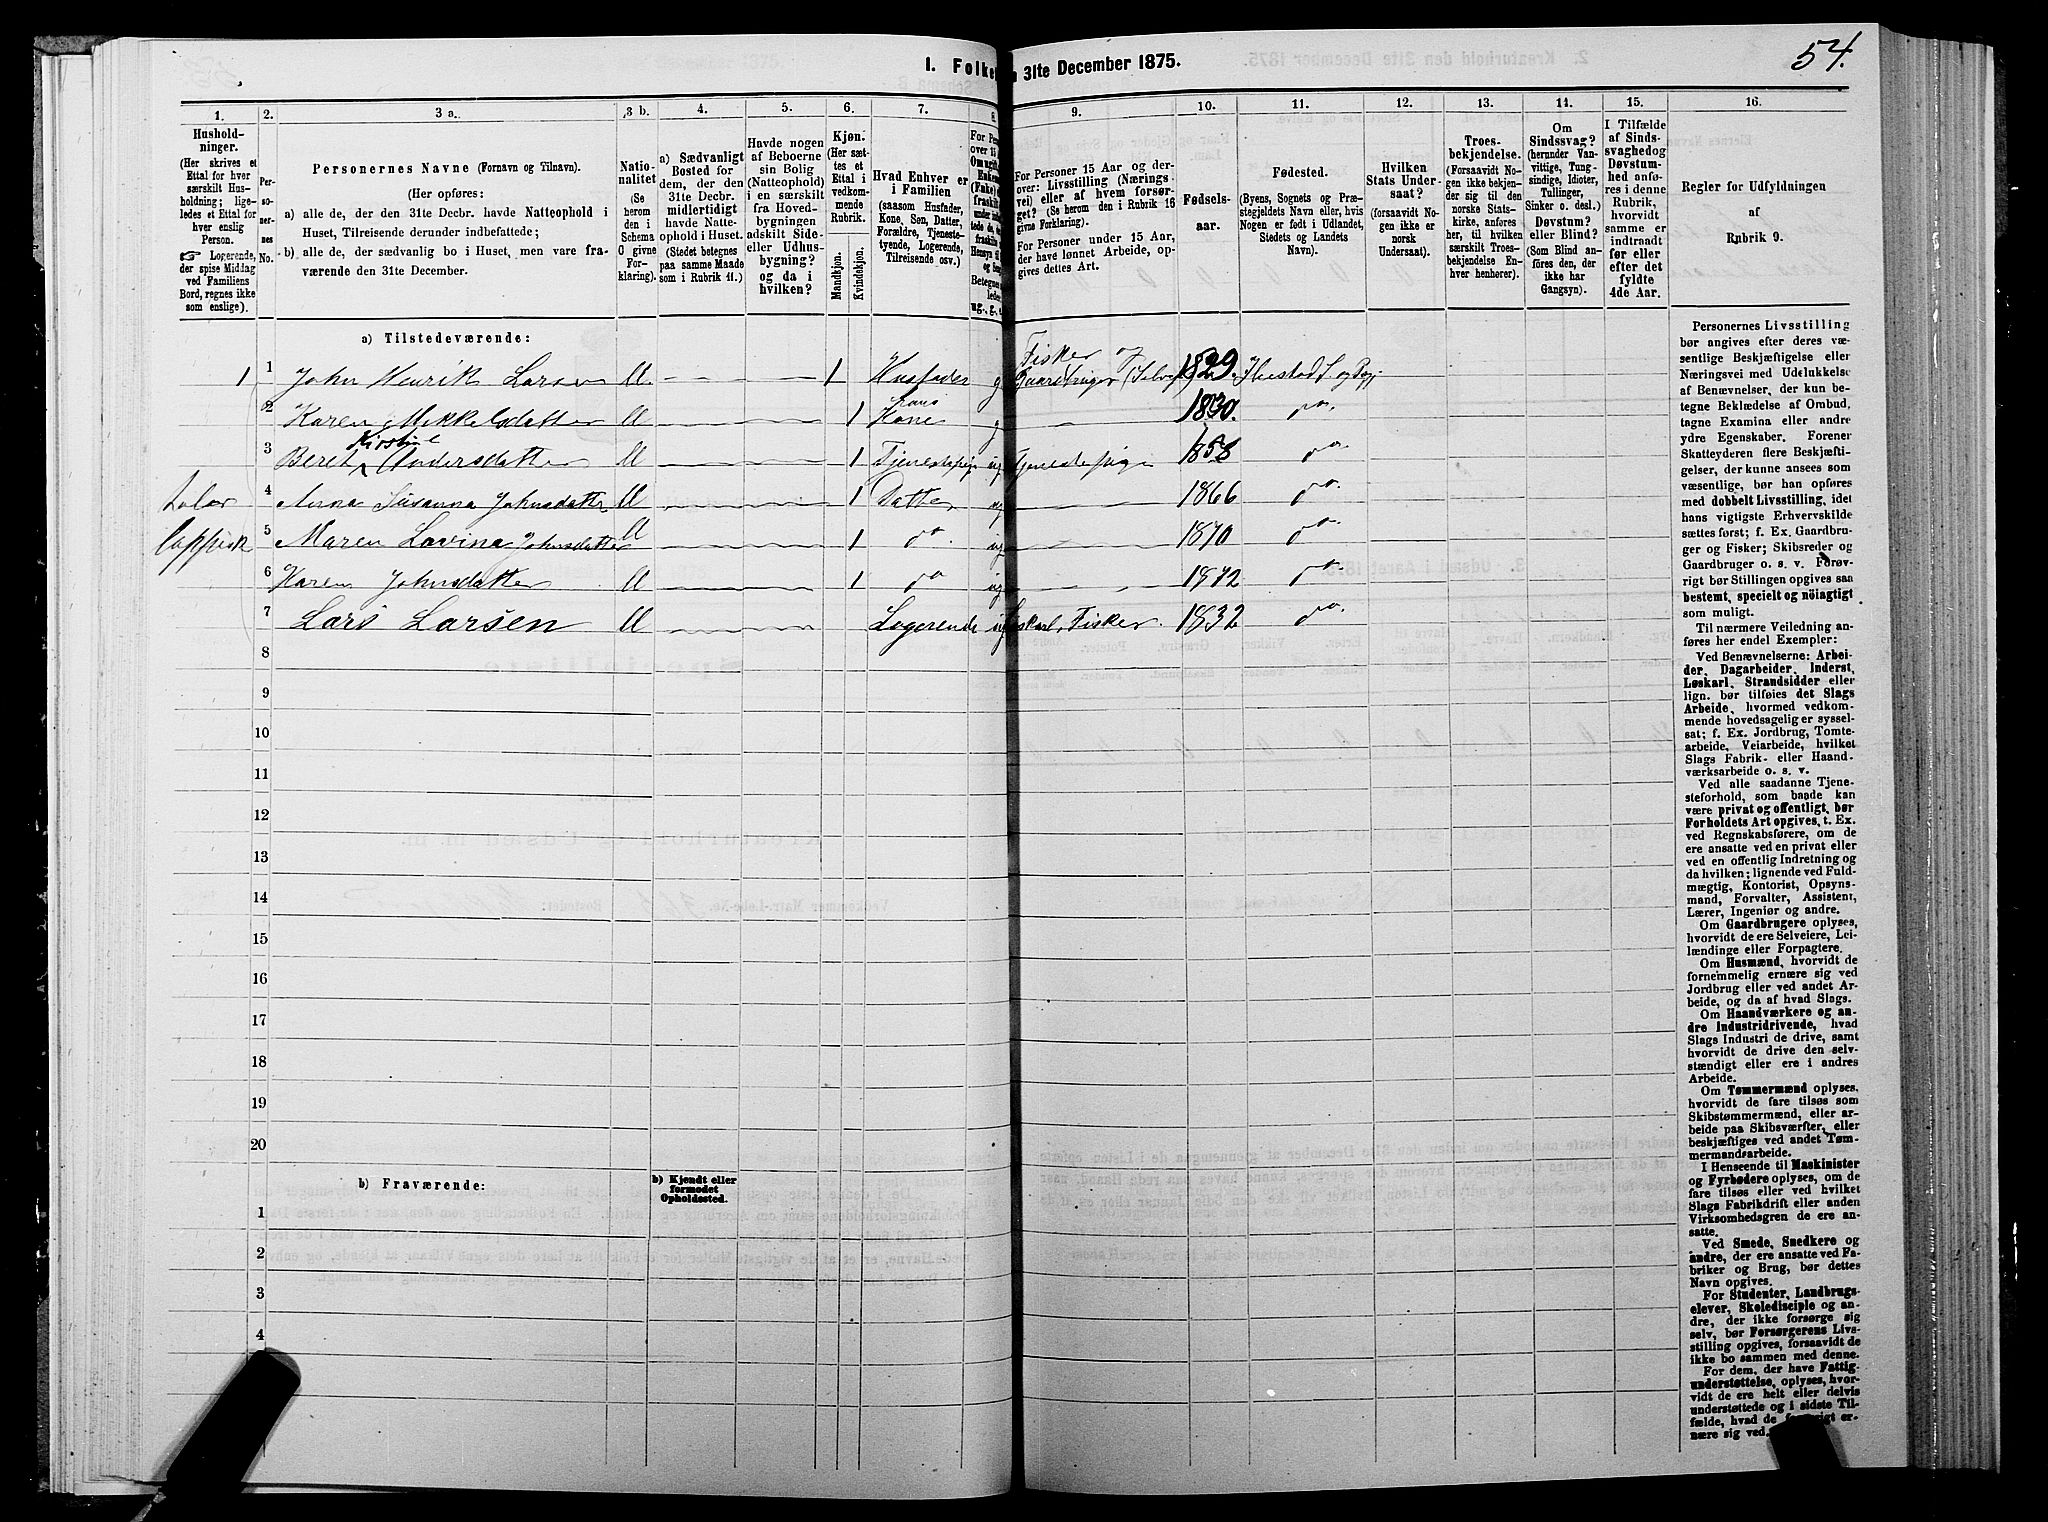 54.
I. Folke
31te December 1875.
1.
2.
3 a.
3 b.
4.
5.
6.
7.
8
9.
10.
11.
12.
13.
14.
15.
16.
Hushold-
ninger.
(Her skrives et
Ettal for hver
særskilt Hus-
holdning; lige-
ledes et Ettal for
hver enslig
Person.
☞ Logerende,
der spise Middag
ved Familiens
Bord, regnes ikke
som enslige).
Per-
so-
ner-
nes
No.
Personernes Navne (Fornavn og Tilnavn).
(Her opføres:
a) alle de, der den 31te Decbr. havde Natteophold i
Huset, Tilreisende derunder indbefattede;
b) alle de, der sædvanlig bo i Huset, men vare fra-
værende den 31te December.
Natio-
nalitet
(Se
herom
den i
Schema
O givne
For-
klaring).
a) Sædvanligt
Bosted for
dem, der den
31te Decbr.
midlertidigt
havde Natte-
ophold i Huset.
(Stedet betegnes
paa samme Maade
som i Rubrik 11.)
Havde nogen
af Beboerne
sin Bolig
(Natteophold)
i en særskilt
fra Hoved-
bygningen
adskilt Side-
eller Udhus-
bygning?
og da i
hvilken?
Kjøn.
(Her sæt-
tes et
Ettal i
vedkom-
mende
Rubrik.
Mandkjøn.
Kvindekjøn.
Hvad Enhver er
i Familien
(saasom Husfader,
Kone, Søn, Datter,
Forældre, Tjeneste-
tyende, Logerende,
Tilreisende osv.)
For Personer 15 Aar og der-
over: Livsstilling (Nærings-
vei) eller af hvem forsør-
get? (Se herom den i Rubrik 16
givne Forklaring).
For Personer under 15 Aar,
der have lønnet Arbeide, op-
gives dettes Art.
Fødsels-
aar.
Fødested.
(Byens, Sognets og Præ-
stegjeldets Navn eller, hvis
Nogen er født i Udlandet,
Stedets og Landets
Navn).
Hvilken
Stats Under-
saat?
(forsaavidt No-
gen ikke er
norsk
Undersaat).
Troes-
bekjendelse.
(Forsaavidt No-
gen ikke bekjen-
der sig til den
norske Stats-
kirke, anføres
her, til hvilken
særskilt Troes-
bekjendelse En-
hver henhører).
Om
Sindssvag?
(herunder Van-
vittige, Tung-
sindige, Idioter,
Tullinger,
Sinker o. desl.)
Døvstum?
eller Blind?
(Som Blind an-
føres den, der
ikke har
Gangsyn).
I Tilfælde
af Sinds-
svaghed og
Døvstum-
hed anfø-
res i denne
Rubrik,
hvorvidt
samme er
indtraadt
før eller
efter det
fyldte
4de Aar.
Regler for Udfyldningen
af
Rubrik 9.
a) Tilstedeværende:
1 1 John Henrik Larsen 1 Husfader g Fisker og Gaardbruger (Selv 1829.
2 Karen Mikkelsdatter 1 hans Kone g 1830. do.
3 Beret Kirstine Andersdatter 1 Tjenestepige ug Tjenestepige 1858 do.
Taler 4 Anna Susanna Johnsdatter 1 Datter ug 1866 do.
lappisk 5 Maren Lovina Johnsdatter 1 do. ug 1870 do.
6 Karen Johnsdatter 1 do ug 1872 do.
7 Lars Larsen Logerende ug Løskarl, Fisker. 1832 do.
8
9
10
11
12
13
14
15
16
17
18
19
20
b) Fraværende:
b) Kjendt eller
formodet
Opholdssted.
1
2
3
4
Personernes Livsstilling
bør angives efter deres væ-
sentlige Beskjæftigelse eller
Næringsvei med Udelukkelse
af Benævnelser, der kun be-
tegne Beklædelse af Ombud,
tagne Examina eller andre
ydre Egenskaber. Forener
Skatteyderen flere Beskjæf-
tigelser, der kunne ansees som
væsentlige, bør han opføres
med dobbelt Livsstilling, idet
hans vigtigste Erhvervskilde
sættes først; f. Ex. Gaardbru-
ger og Fisker; Skibsreder og
Gaardbruger o. s. v. Forøv-
rigt bør Stillingen opgives saa
bestemt, specielt og nöiagtigt
som muligt.
Til nærmere Veiledning an-
føres her endel Exempler:
Ved Benævnelserne: Arbei-
der, Dagarbeider, Inderst,
Løskarl, Strandsidder eller
lign. bør tilføies det Slags
Arbeide, hvormed vedkom-
mende hovedsagelig er syssel-
sat; f. Ex. Jordbrug, Tomte-
arbeide, Veiarbeide, hvilket
Slags Fabrik- eller Haand-
værksarbeide o. s. v.
Ved alle saadanne Tjene-
steforhold, som baade kan
være privat og offentligt, bør
Forholdets Art opgives, t. Ex.
ved Regnskabsførere, om de
ere ansatte ved en privat eller
ved en offentlig Indretning og
da hvilken; lignende ved Fuld-
mægtig, Kontorist, Opsyns-
mand, Forvalter, Assistent,
Lærer, Ingeniør og andre.
Om Gaardbrugere oplyses,
hvorvidt de ere Selveiere, Lei-
lændinge eller Forpagtere.
Om Husmænd, hvorvidt de
fornemmelig ernære sig ved
Jordbrug eller ved andet Ar-
beide, og da af hvad Slags.
Om Haandværkere og an-
dre Industridrivende, hvad
Slags Industri de drive, samt
hvorvidt de drive den selv-
stændigt eller ere i andres
Arbeide.
Om Tømmermænd oplyses,
hvorvidt de fare tilsøs som
Skibstømmermænd, eller ar-
beide paa Skibsværfter, eller
beskjæftiges ved andet Tøm-
mermandsarbeide.
I Henseende til Maskinister
og Fyrbødere oplyses, om de
fare tilsøs eller ved hvilket
Slags Fabrikdrift eller anden
Virksomhedsgren de ere an-
satte.
Ved Smede, Snedkere og
andre, der ere ansatte ved Fa-
briker og Brug, bør dettes
Navn opgives.
For Studenter, Landbrugs-
elever, Skoledisciple og an-
dre, der ikke forsørge sig
selv, bør Forsørgerens Livs-
stilling opgives, forsaavidt de
ikke bo sammen med denne.
For dem, der have Fattig-
understøttelse, oplyses, hvor-
vidt de ere helt eller delvis
understøttede og i sidste Til-
fælde, hvad de er-
nære sig ved.